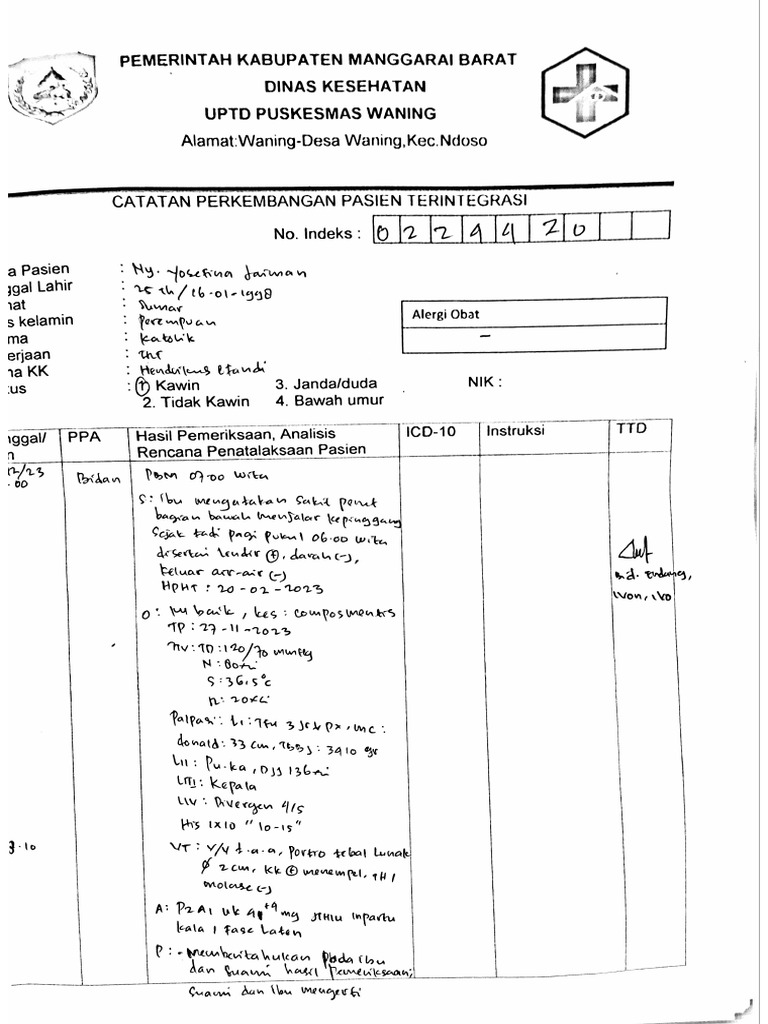 PEMERINTAH KABUPATEN MANGGARAI BARAT
DINAS KESEHATAN
UPTD PUSKESMAS WANING
Alamat:Waning-Desa Waning,Kec.Ndoso
CATATAN PERKEMBANGAN PASIEN TERINTEGRASI
No. Indeks : 0 2 2 9 4 20
a Pasien : Ny. Yosefina Jaiman
ggal Lahir : 25 th / 16-01-1998
nat : Sumar
s kelamin : Perempuan
ma : Katolik
erjaan : IRT
na KK : Hendrikus Efandi
tus : 1 Kawin 3. Janda/duda
2. Tidak Kawin 4. Bawah umur
Alergi Obat
-
NIK :
nggal/ PPA Hasil Pemeriksaan, Analisis ICD-10 Instruksi TTD
n Rencana Penatalaksaan Pasien
12/23 Bidan PBM 07.00 wita
.00
S: Ibu mengatakan sakit perut
bagian bawah menjalar kepinggang
Sejak tadi pagi pukul 06.00 wita
disertai lendir (+), darah (-),
keluar air-air (-)
HPHT : 20-02-2023
Bid. Endang,
Ivon, Ivo
O: KU baik, kes : composmentis
TP : 27-11-2023
TTV : TD : 120/70 mmHg
N : 80x/i
S : 36,5°c
R : 20x/i
Palpasi : LI : TFU 3 jr ↓ px, MC :
donald : 33 cm, TBBJ : 3410 gr
LII : Pu-ka, DJJ 136x/i
LIII : Kepala
LIV : Divergen 4/5
His 1x10 "10-15"
VT : V/V t.a.a, portio tebal lunak
Ø 2 cm, KK (+) menempel, TH I
molase (-)
.10
A: P2A1 UK +4 mg JTHIU Inpartu
kala 1 Fase Laten
P : - Memberitahukan pada ibu
dan Suami hasil Pemeriksaan;
Suami dan Ibu mengerti